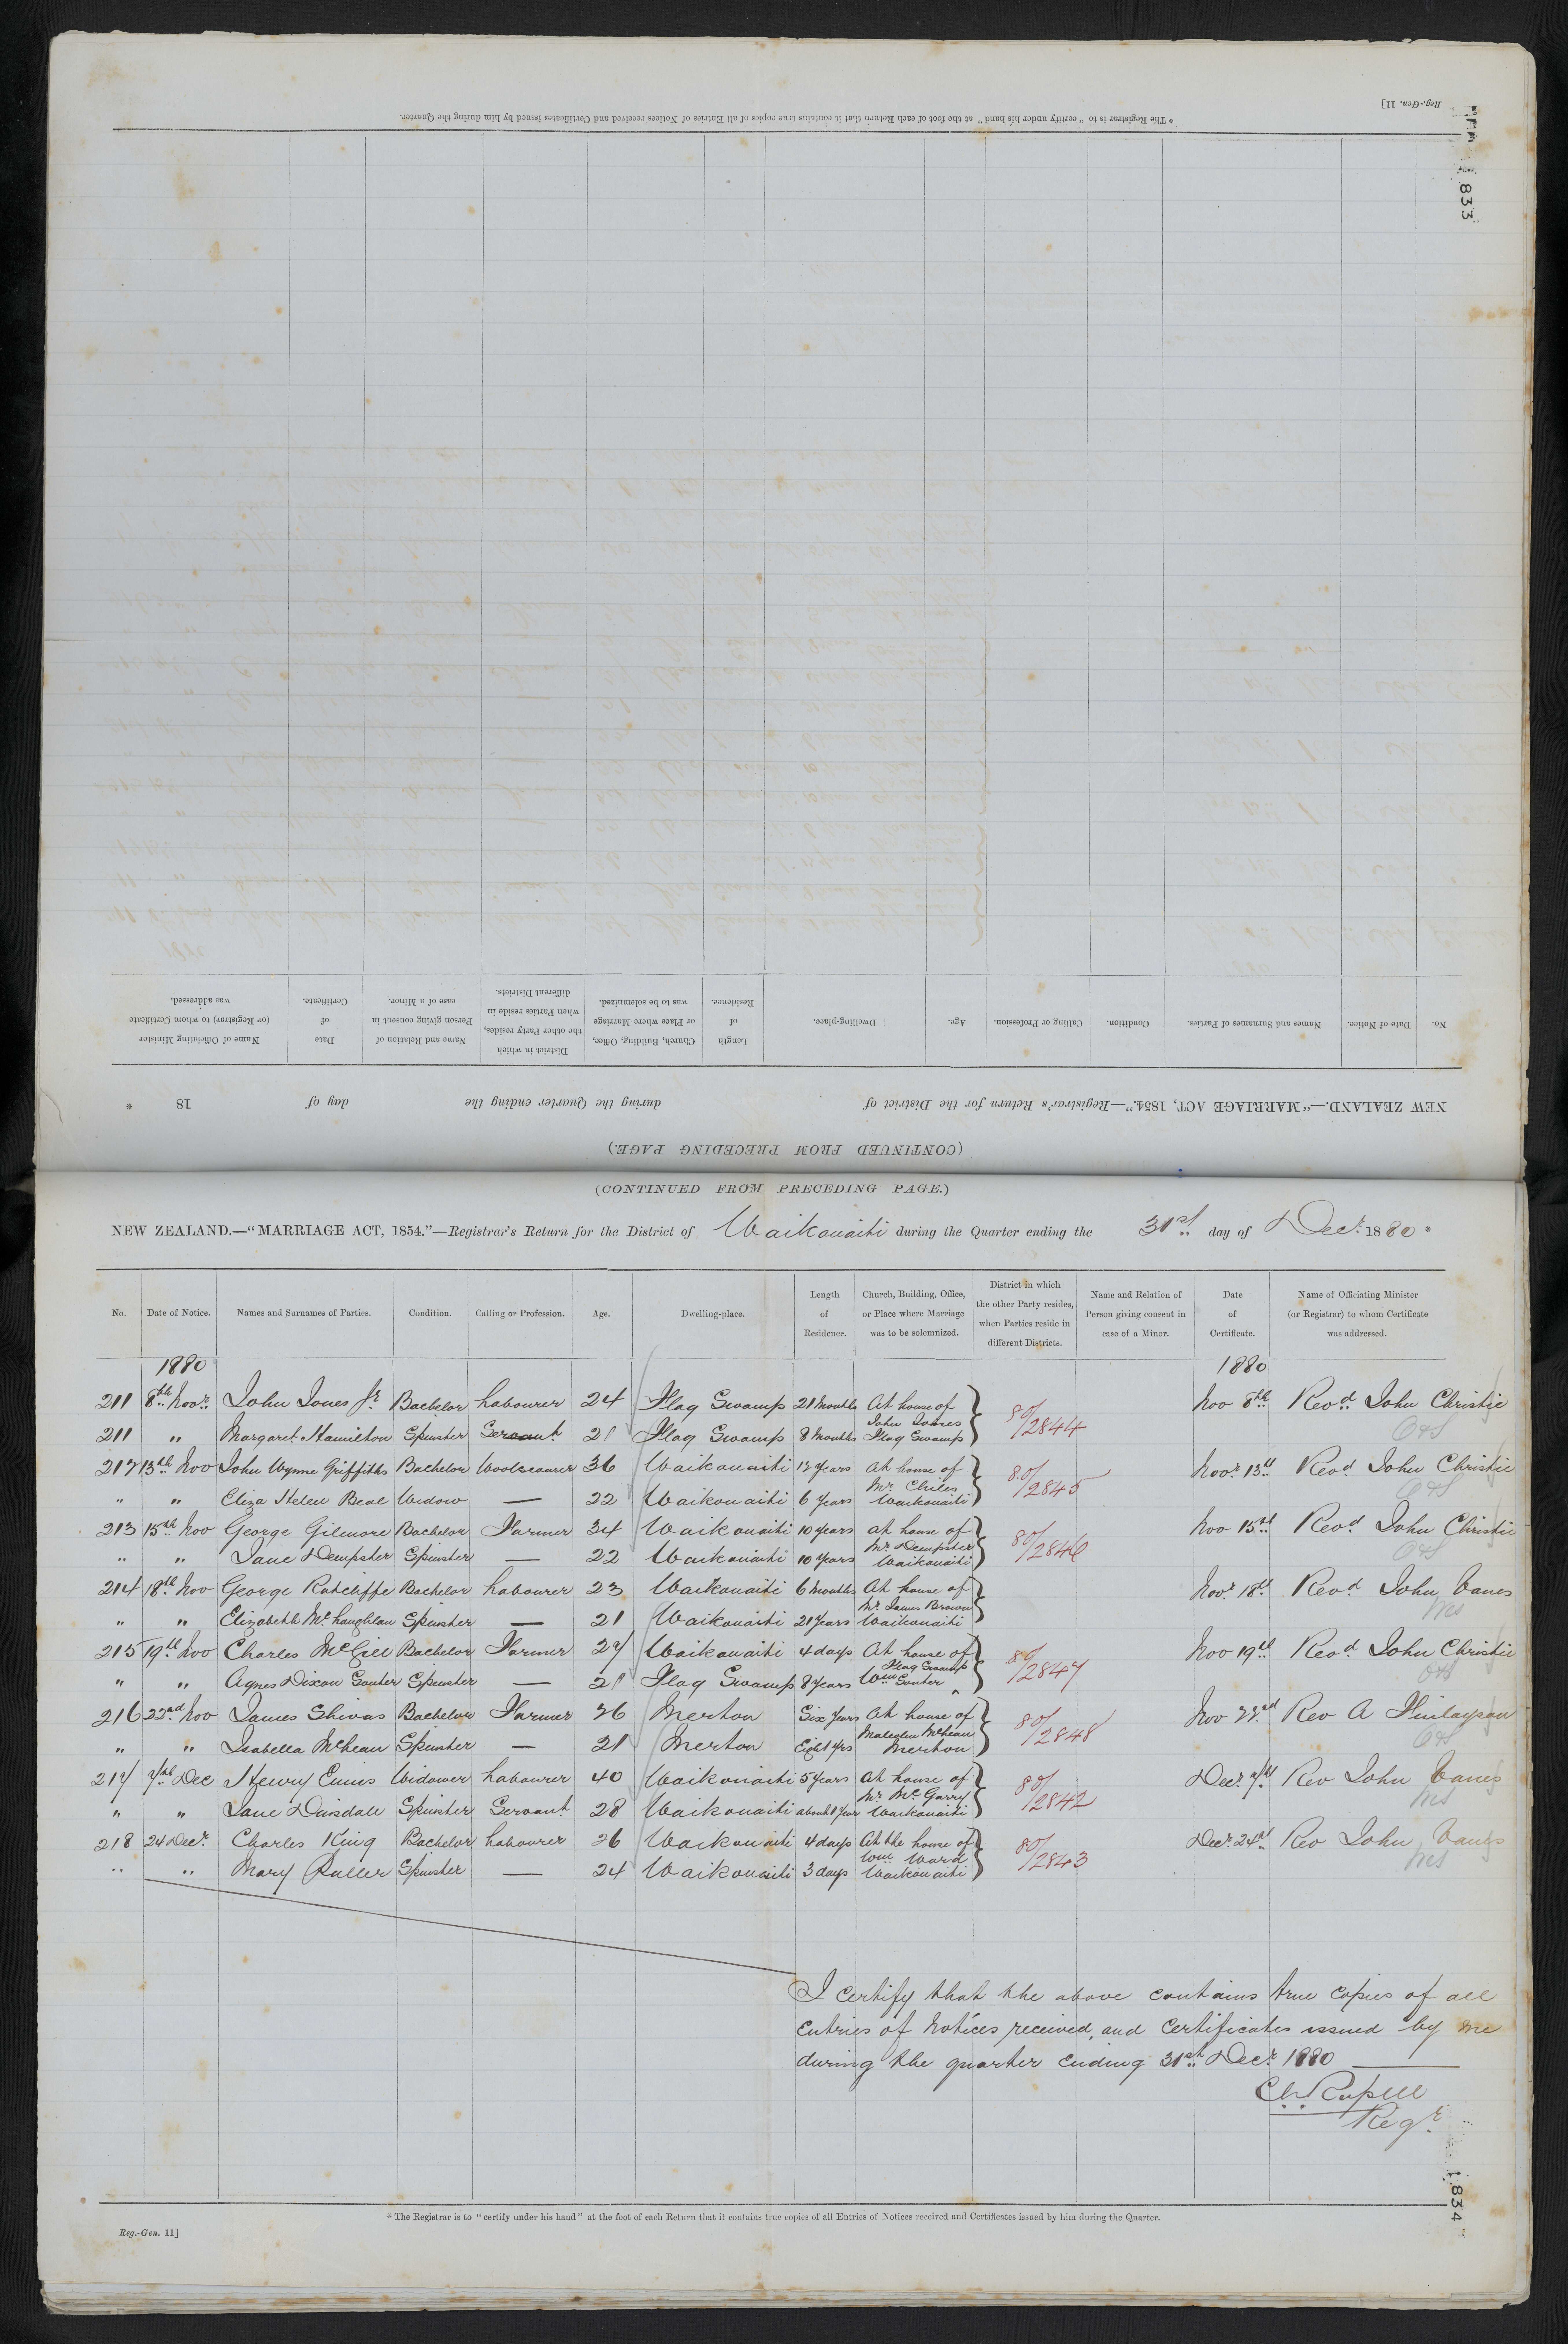 Reg.-Gen. 11]
* The Registrar is to "certify under his hand" at the foot of each Return that it contains true copies of all Entries of Notices received and Certificates issued by him during the Quarter.
833
No. Date of Notice. Names and Surnames of Parties. Condition. Calling or Profession. Age. Dwelling-place. Length of Residence. Church, Building, Office, or Place where Marriage was to be solemnized. District in which the other Party resides, when Parties reside in different Districts. Name and Relation of Person giving consent in case of a Minor. Date of Certificate. Name of Officiating Minister (or Registrar) to whom Certificate was addressed.
NEW ZEALAND.—"MARRIAGE ACT, 1854."—Registrar's Return for the District of during the Quarter ending the day of 18 .
(CONTINUED FROM PRECEDING PAGE.)
(CONTINUED FROM PRECEDING PAGE.)
NEW ZEALAND.—"MARRIAGE ACT, 1854."—Registrar's Return for the District of Waikouaiti during the Quarter ending the 31st day of Decr. 1880.
No. Date of Notice. Names and Surnames of Parties. Condition. Calling or Profession. Age. Dwelling-place. Length of Residence. Church, Building, Office, or Place where Marriage was to be solemnized. District in which the other Party resides, when Parties reside in different Districts. Name and Relation of Person giving consent in case of a Minor. Date of Certificate. Name of Officiating Minister (or Registrar) to whom Certificate was addressed.
1880 1880
211 8th Novr. John Jones Jr. Bachelor Labourer 24 Flag Swamp 21 Months At house of John Jones Flag Swamp 80/2844 Nov 8th Revd. John Christie
211 " Margaret Hamilton Spinster Servant 21 Flag Swamp 8 Months O&S
212 13th Nov John Wynne Griffiths Bachelor Woolscourer 36 Waikouaiti 12 years at house of Mr. Chiles Waikouaiti 80/2845 Novr. 13th Revd John Christie
" " Eliza Helen Beal Widow — 22 Waikouaiti 6 years O&S
213 15th Nov George Gilmore Bachelor Farmer 34 Waikouaiti 10 years at house of Mr. Dempster Waikouaiti 80/2846 Nov 15th Revd John Christie
" " Jane Dempster Spinster — 22 Waikouaiti 10 years O&S
214 18th Nov George Ratcliffe Bachelor Labourer 23 Waikouaiti 6 Months At house of Mr. James Brown Waikouaiti Novr. 18th Revd John
" " Elizabeth McLaughlan Spinster — 21 Waikouaiti 21 Years
215 19th Nov Charles McGill Bachelor Farmer 27 Waikouaiti 4 days At house of Wm Souter Flag Swamp 80/2847 Nov 19th Revd John Christie
" " Agnes Dixon Souter Spinster — 21 Flag Swamp 8 years O&S
216 22nd Nov James Shivas Bachelor Farmer 26 Merton Six Years At house of Malcolm McLean Merton 80/2848 Nov 22nd Rev A Finlayson
" " Isabella McLean Spinster — 21 Merton Eight Yrs O&S
217 7th Dec Henry Enms Widower Labourer 40 Waikouaiti 5 years At house of Mr. McGarry Waikouaiti 80/2842 Decr. 7th Rev John
" " Jane Dinsdale Spinster Servant 28 Waikouaiti about 1 year
218 24 Decr. Charles King Bachelor Labourer 26 Waikouaiti 4 days At the house of Wm. Ward Waikouaiti 80/2843 Decr. 24th Rev John
" " Mary Spinster — 24 Waikouaiti 3 days
I certify that the above contains true copies of all
Entries of Notices received, and Certificates issued by me
during the quarter ending 31st Decr. 1880
Regr.
1834
* The Registrar is to "certify under his hand" at the foot of each Return that it contains true copies of all Entries of Notices received and Certificates issued by him during the Quarter.
Reg.-Gen. 11]